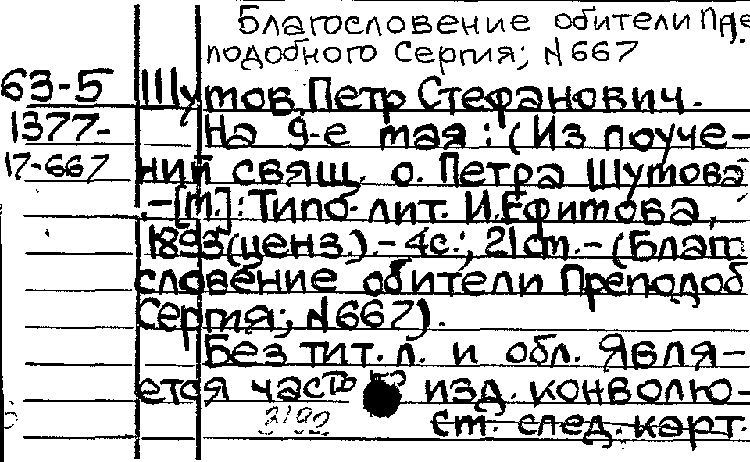 Благословение обители Пре
подобного Сергия; N667
63-5 Шутов, Петр Стефанович.
1377- На 9-е мая: (Из поуче-
17-667 ний свящ. о. Петра Шутова)
.-[М.]: Типо-лит. И.Ефимова,
1893(ценз.).-4с.; 21см.-(Благо
словение обители Преподоб
Сергия; N667).
Без тит.л. и обл. Явля-
ется частью изд. конволю-
3192 См. след. карт.